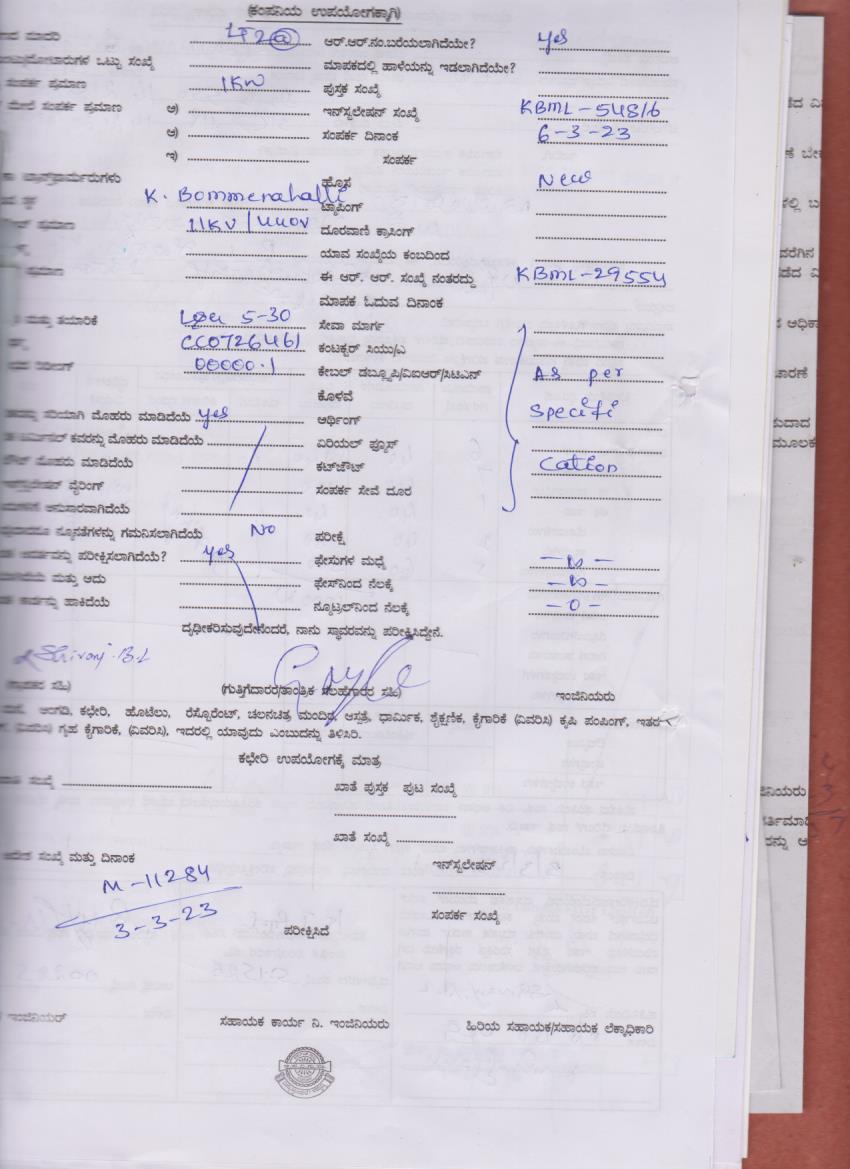 (ಕಂಪನಿಯ ಉಪಯೋಗಕ್ಕಾಗಿ)
ಮಾದರಿ LT2(a) ಆರ್.ಆರ್.ನಂ.ಬರೆಯಲಾಗಿದೆಯೇ? yes
ಒಟ್ಟು ಸಂಖ್ಯೆ ಮಾಪಕದಲ್ಲಿ ಹಾಳೆಯನ್ನು ಇಡಲಾಗಿದೆಯೇ?
ಸಂಪರ್ಕ ಪ್ರಮಾಣ 1KW ಪುಸ್ತಕ ಸಂಖ್ಯೆ
ಮೇಲೆ ಸಂಪರ್ಕ ಪ್ರಮಾಣ ಅ) ಇನ್‌ಸ್ಟಲೇಷನ್ ಸಂಖ್ಯೆ KBML-54816
ಆ) ಸಂಪರ್ಕ ದಿನಾಂಕ 6-3-23
ಇ) ಸಂಪರ್ಕ
ಟ್ರಾನ್ಸ್‌ಫಾರ್ಮರುಗಳು ಹೊಸ New
K. Bommenahalli ಟ್ಯಾಪಿಂಗ್
ಪ್ರಮಾಣ 11KV/440V ದೂರವಾಣಿ ಕ್ರಾಸಿಂಗ್
ಯಾವ ಸಂಖ್ಯೆಯ ಕಂಬದಿಂದ
ಪ್ರಮಾಣ ಈ ಆರ್. ಆರ್. ಸಂಖ್ಯೆ ನಂತರದ್ದು KBML-29554
ಮಾಪಕ ಓದುವ ದಿನಾಂಕ
ಮತ್ತು ತಯಾರಿಕೆ 5-30 ಸೇವಾ ಮಾರ್ಗ
CC0726461 ಕಂಟಕ್ಟರ್ ಸಿಯು/ಎ
ರೀಡಿಂಗ್ 00000.1 ಕೇಬಲ್ ಡಬ್ಲ್ಯೂಪಿ/ವಿಐಆರ್/ಸಿಟಿಎಸ್ As per
ಕೊಳವೆ
ಸರಿಯಾಗಿ ಮೊಹರು ಮಾಡಿದೆಯೆ yes ಆರ್ಥಿಂಗ್ Specifi
ಟರ್ಮಿನಲ್ ಕವರನ್ನು ಮೊಹರು ಮಾಡಿದೆಯೆ ಏರಿಯಲ್ ಫ್ಯೂಸ್
ಮೊಹರು ಮಾಡಿದೆಯೆ ಕಟ್‌ಔಟ್ cation
ವೈರಿಂಗ್ ಸಂಪರ್ಕ ಸೇವೆ ದೂರ
ಅನುಸಾರವಾಗಿದೆಯೆ
ನ್ಯೂನತೆಗಳನ್ನು ಗಮನಿಸಲಾಗಿದೆಯೆ No ಪರೀಕ್ಷೆ
ಪರೀಕ್ಷಿಸಲಾಗಿದೆಯೆ? yes ಫೇಸುಗಳ ಮಧ್ಯೆ
ಮತ್ತು ಅದು ಫೇಸ್‌ನಿಂದ ನೆಲಕ್ಕೆ
ಹಾಕಿದೆಯೆ ನ್ಯೂಟ್ರಲ್‌ನಿಂದ ನೆಲಕ್ಕೆ -0-
ದೃಢೀಕರಿಸುವುದೇನೆಂದರೆ, ನಾನು ಸ್ಥಾವರವನ್ನು ಪರೀಕ್ಷಿಸಿದ್ದೇನೆ.
ಸಹಿ) (ಗುತ್ತಿಗೆದಾರರ/ತಾಂತ್ರಿಕ ಸಲಹೆಗಾರರ ಸಹಿ) ಇಂಜಿನಿಯರು
ಅಂಗಡಿ, ಕಛೇರಿ, ಹೊಟೇಲು, ರೆಸ್ಟೊರೆಂಟ್, ಚಲನಚಿತ್ರ ಮಂದಿರ, ಆಸ್ಪತ್ರೆ, ಧಾರ್ಮಿಕ, ಶೈಕ್ಷಣಿಕ, ಕೈಗಾರಿಕೆ (ವಿವರಿಸಿ) ಕೃಷಿ ಪಂಪಿಂಗ್, ಇತರ
(ವಿವರಿಸಿ) ಗೃಹ ಕೈಗಾರಿಕೆ, (ವಿವರಿಸಿ), ಇದರಲ್ಲಿ ಯಾವುದು ಎಂಬುದನ್ನು ತಿಳಿಸಿರಿ.
ಕಛೇರಿ ಉಪಯೋಗಕ್ಕೆ ಮಾತ್ರ
ಸಂಖ್ಯೆ ಖಾತೆ ಪುಸ್ತಕ ಪುಟ ಸಂಖ್ಯೆ
ಖಾತೆ ಸಂಖ್ಯೆ
ಸಂಖ್ಯೆ ಮತ್ತು ದಿನಾಂಕ ಇನ್‌ಸ್ಟಲೇಷನ್
M-11284
3-3-23 ಸಂಪರ್ಕ ಸಂಖ್ಯೆ
ಪರೀಕ್ಷಿಸಿದೆ
ಇಂಜಿನಿಯರ್ ಸಹಾಯಕ ಕಾರ್ಯ ನಿ. ಇಂಜಿನಿಯರು ಹಿರಿಯ ಸಹಾಯಕ/ಸಹಾಯಕ ಲೆಕ್ಕಾಧಿಕಾರಿ